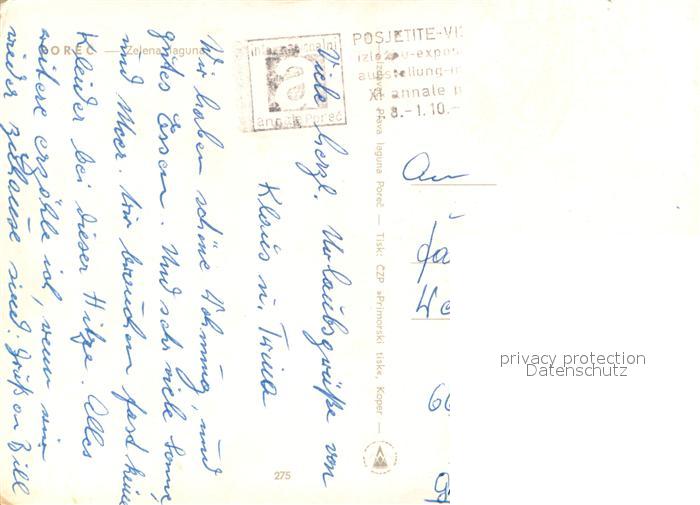 POREČ — Zelena laguna
Viele herzl. Urlaubsgrüße von
Klaus u. 
Wir haben schöne Wohnung, und
gutes Essen. Und sehr viele Sonne,
und Meer. Wir brauchen fast keine
Kleider bei dieser Hitze. Alles
weitere erzähle ich, wenn wir
wieder zuhause sind. Gruß an Bill
internacionalni
annale Poreč
POSJETITE-VI
izložbu-expos
ausstellung-in
XI annale
8.-1.10.-
Plava laguna Poreč — Tisk: ČZP »Primorski tisk«, Koper —
An
66
275
privacy protection
Datenschutz